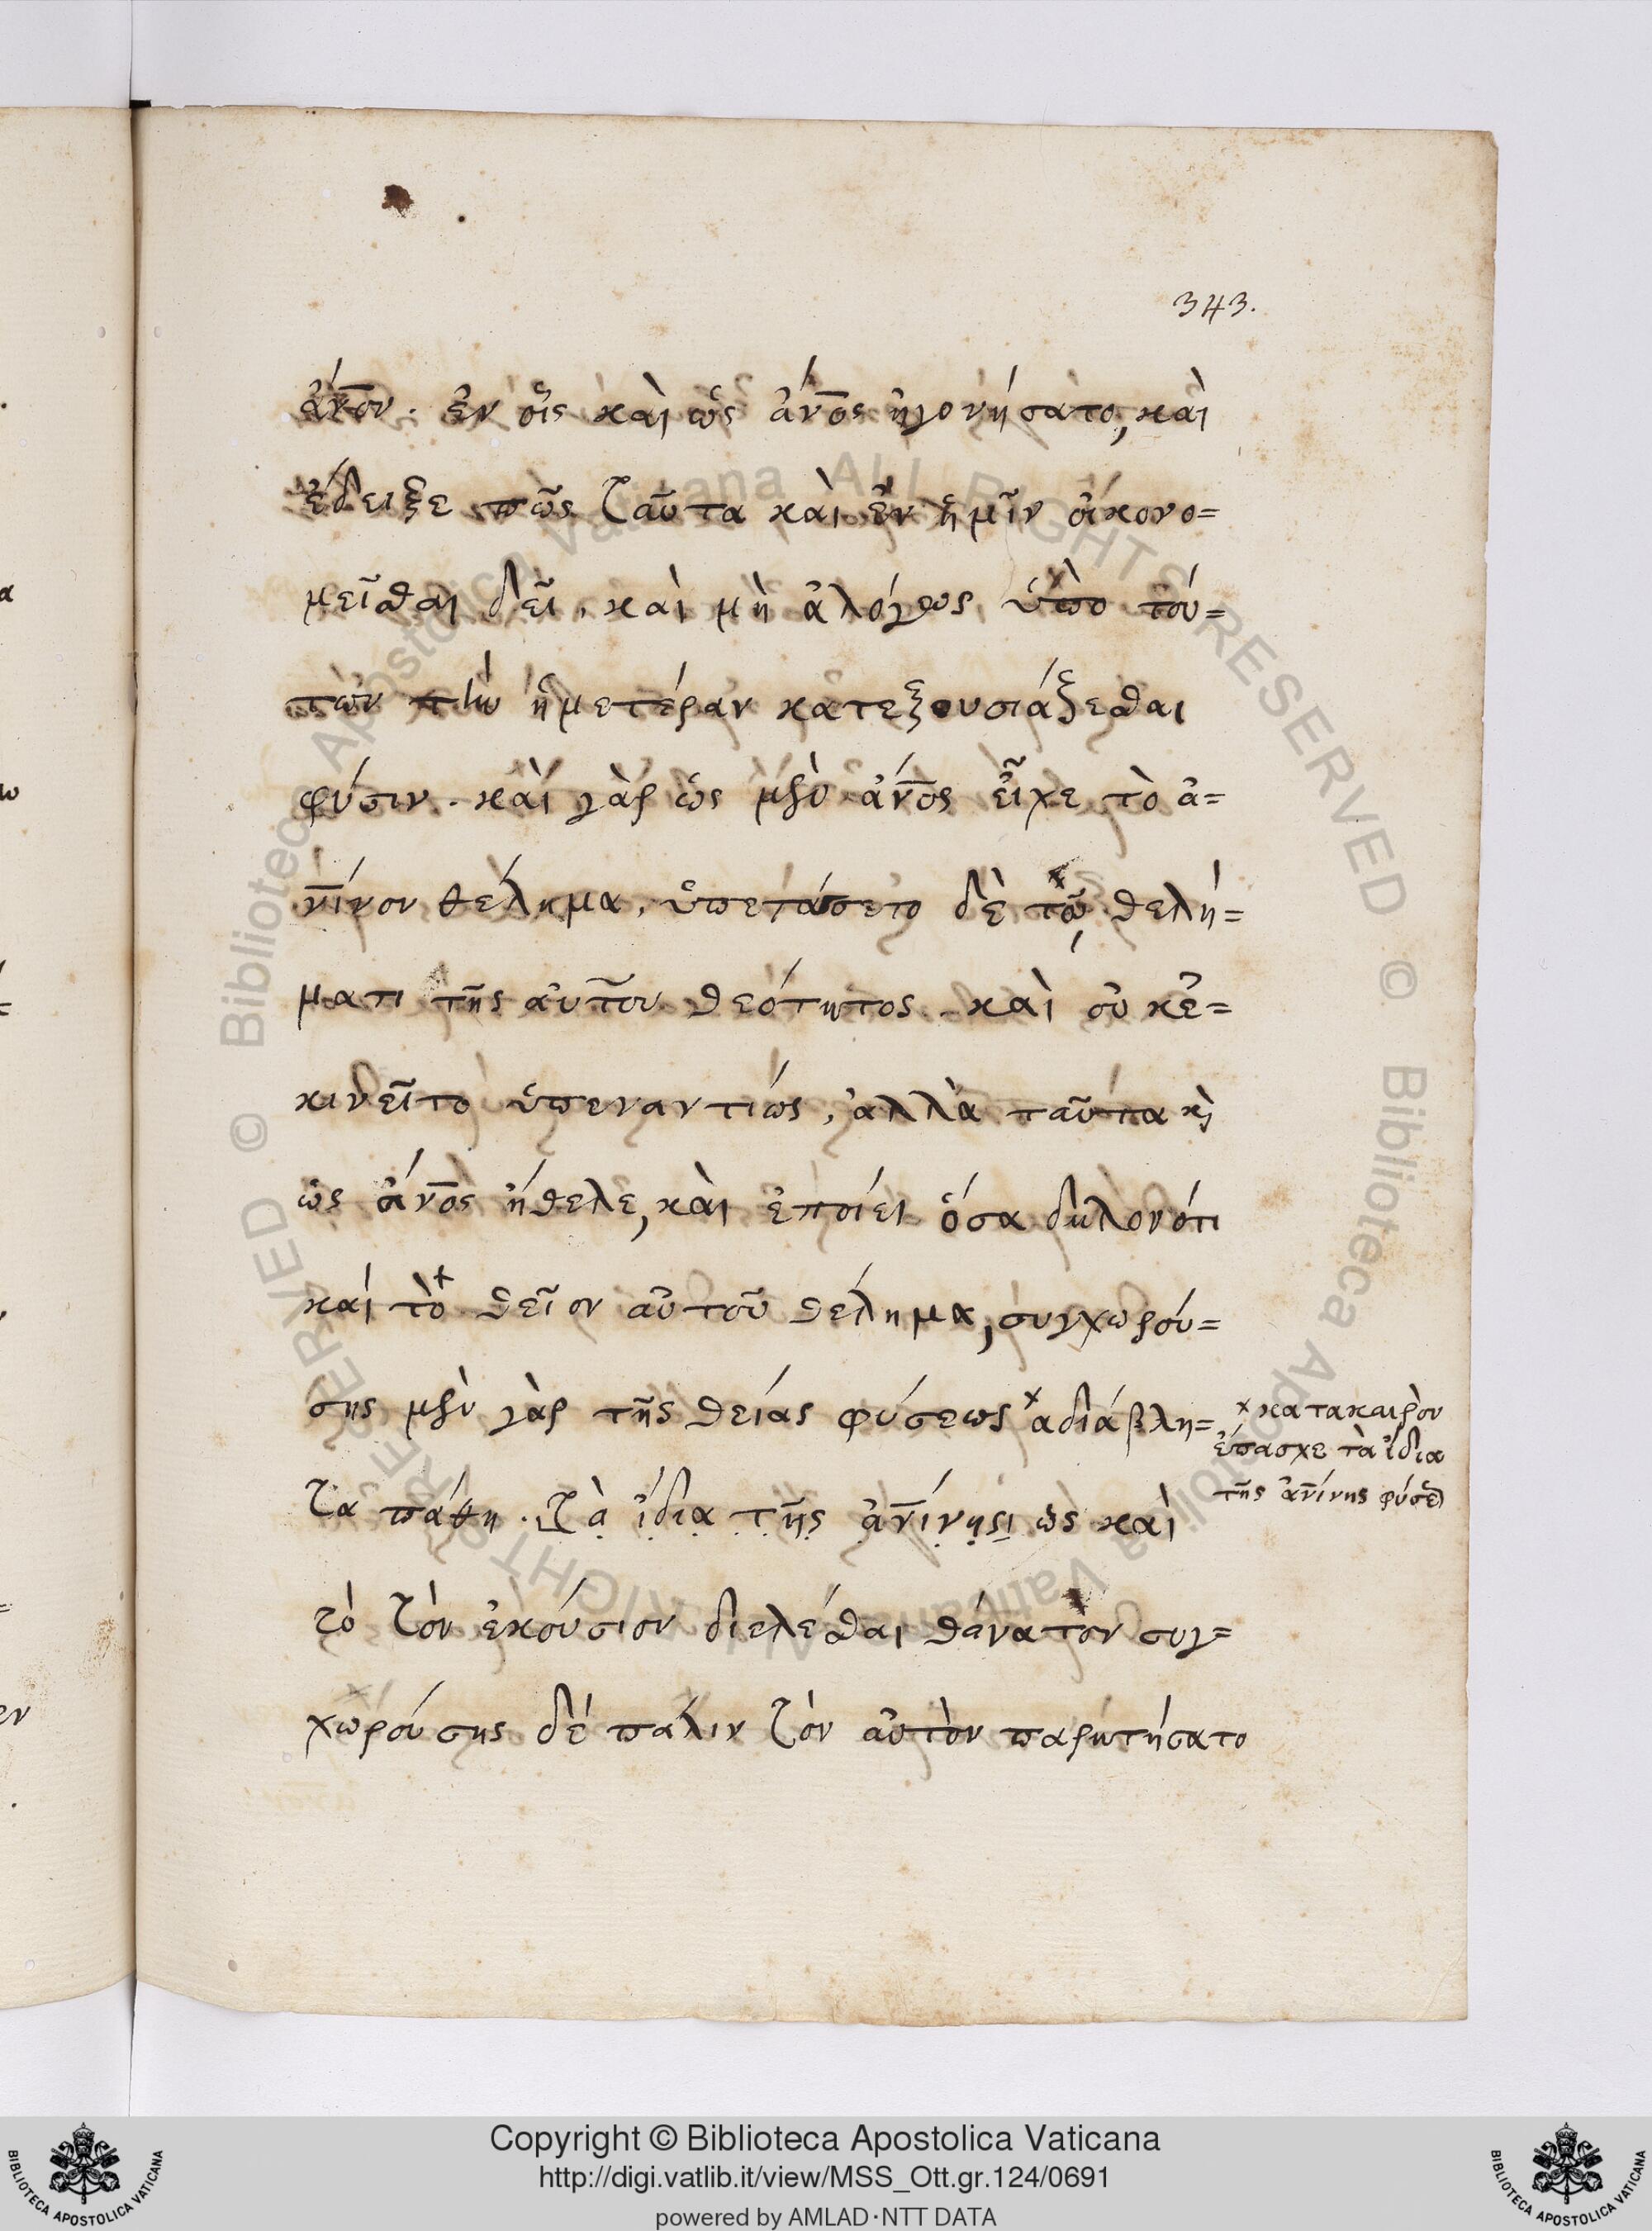 343.
ἀν̅ου. ἐν οἷς καὶ ὡς ἄν̅ος ἠγονήσατο, καὶ
ἔδειξε πῶς ταῦτα καὶ ἐν ἡμῖν οἰκονο=
μεῖσθαι δεῖ, καὶ μὴ ἀλόγως ὑπὸ τού=
των τὴν ἡμετέραν κατεξουσιάζεσθαι
φύσιν. καὶ γὰρ ὡς μὲν ἄν̅ος εἶχε τὸ ἀ=
ν̅ίνον θέλημα, ὑπετάσετο δὲ τῷ θελή=
ματι τῆς αὐτοῦ θεότητος. καὶ οὐκ ἐ=
κινεῖτο ὑπεναντίως, ἀλλὰ ταῦτα κ̀
ὡς ἄν̅ος ἤθελε, καὶ ἐποίει ὅσα δηλονότι
καί τὸ+ θεῖον αὐτοῦ θέλημα, συγχωρού=
σης μὲν γὰρ τῆς θείας φύσεως x αδιάβλη=
τα πάθη. τὰ ἰδια τῆς ἀν̅ίνης, ὡς καὶ
τὸ τὸν ἑκούσιον διελέσθαι θάνατὸν συγ=
χωρούσης δέ πάλιν τὸν αὐτὸν παρῃτήσατο
x κατακαιρὸν
ἔπασχε τὰ ἴδια
τῆς ἀν̅ίνης φύσε
Copyright © Biblioteca Apostolica Vaticana
http://digi.vatlib.it/view/MSS_Ott.gr.124/0691
powered by AMLAD·NTT DATA
BIBLIOTECA APOSTOLICA VATICANA
BIBLIOTECA APOSTOLICA VATICANA
© Biblioteca Apostolica Vaticana ALL RIGHTS RESERVED
© Biblioteca Apostolica Vaticana ALL RIGHTS RESERVED